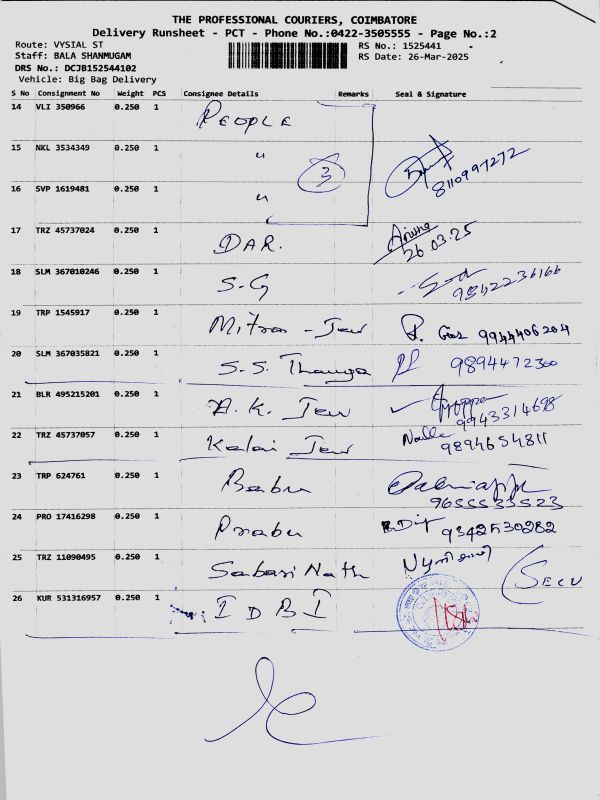 THE PROFESSIONAL COURIERS, COIMBATORE
Delivery Runsheet - PCT - Phone No.:0422-3505555 - Page No.:2
Route: VYSIAL ST RS No.: 1525441
Staff: BALA SHANMUGAM RS Date: 26-Mar-2025
DRS No.: DCJB152544102
Vehicle: Big Bag Delivery
S No Consignment No Weight PCS Consignee Details Remarks Seal & Signature
14 VLI 350966 0.250 1 PEOPLE
15 NKL 3534349 0.250 1 " 3 8110997272
16 SVP 1619481 0.250 1 "
17 TRZ 45737024 0.250 1 DAR. 26.03.25
18 SLM 367010246 0.250 1 S.G 9842236166
19 TRP 1545917 0.250 1 Mitra - Jew 9944406204
20 SLM 367035821 0.250 1 S.S. Thanga 9894472360
21 BLR 495215201 0.250 1 A.K. Jew 9943314698
22 TRZ 45737057 0.250 1 Kalai Jew 9894654811
23 TRP 624761 0.250 1 Babu 9655533523
24 PRO 17416298 0.250 1 Prabu 9342530282
25 TRZ 11090495 0.250 1 Sabari Nath
26 KUR 531316957 0.250 1 IDBI